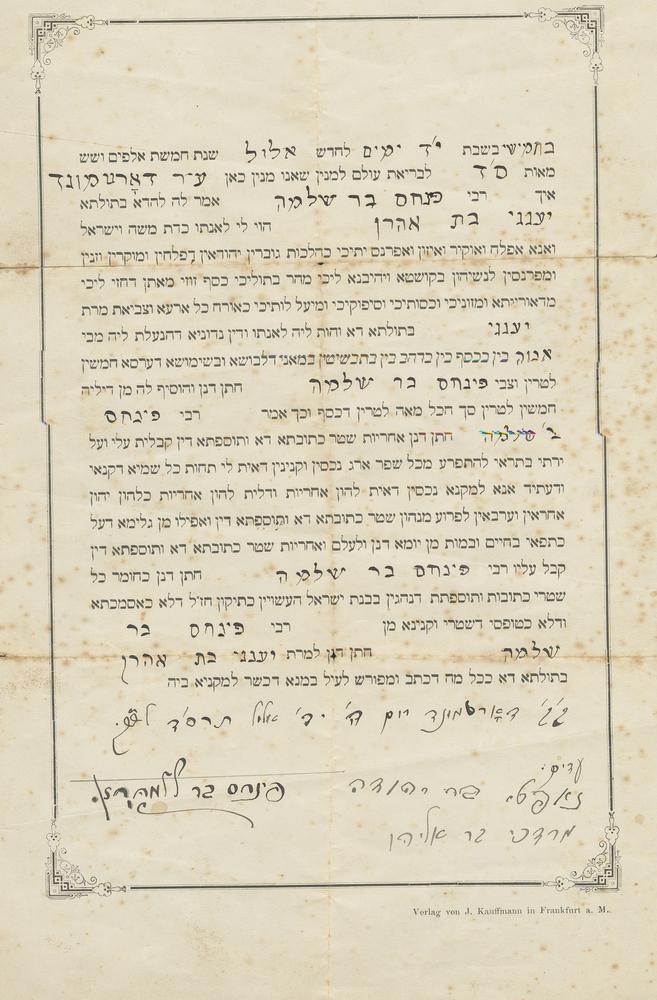 בחמישי בשבת י״ד ימים לחדש אלול שנת חמשת אלפים ושש
מאות ס״ד לבריאת עולם למנין שאנו מנין כאן עיר דאָרטמונד
איך רבי פנחס בר שלמה אמר לה להדא בתולתא
יענגי בת אהרן הוי לי לאנתו כדת משה וישראל
ואנא אפלח ואוקיר ואיזון ואפרנס יתיכי כהלכות גוברין יהודאין דפלחין ומוקרין וזנין
ומפרנסין לנשיהון בקושטא ויהיבנא ליכי מהר בתוליכי כסף זוזי מאתן דחזי ליכי
מדאורייתא ומזוניכי וכסותיכי וסיפוקיכי ומיעל לותיכי כאורח כל ארעא וצביאת מרת
יענגי בתולתא דא והות ליה לאנתו ודין נדוניא דהנעלת ליה מבי
אבוה בין בכסף בין בדהב בין בתכשיטין במאני דלבושא ובשימושא דערסא חמשין
לטרין וצבי פינחס בר שלמה חתן דנן והוסיף לה מן דיליה
חמשין לטרין סך הכל מאה לטרין דכסף וכך אמר רבי פינחס
ב׳ שלמה חתן דנן אחריות שטר כתובתא דא ותוספתא דין קבלית עלי ועל
ירתי בתראי להתפרע מכל שפר ארג נכסין וקנינין דאית לי תחות כל שמיא דקנאי
ודעתיד אנא למקנא נכסין דאית להון אחריות ודלית להון אחריות כלהון יהון
אחראין וערבאין לפרוע מנהון שטר כתובתא דא ותוספתא דין ואפילו מן גלימא דעל
כתפאי בחיים ובמות מן יומא דנן ולעלם ואחריות שטר כתובתא דא ותוספתא דין
קבל עליו רבי פינחס בר שלמה חתן דנן כחומר כל
שטרי כתובות ותוספתת דנהגין בבנת ישראל העשויין כתיקון חז״ל דלא כאסמכתא
ודלא כטופסי דשטרי וקנינא מן רבי פינחס בר
שלמה חתן דנן למרת יענגי בת אהרן
בתולתא דא ככל מה דכתב ומפורש לעיל במנא דכשר למקניא ביה
דאָרטמונד יום ה׳ י״ד אלול תרס״ד
עדים:
בר יהודה
פינחס בר
מרדכי בר אליהו
Verlag von J. Kauffmann in Frankfurt a. M.